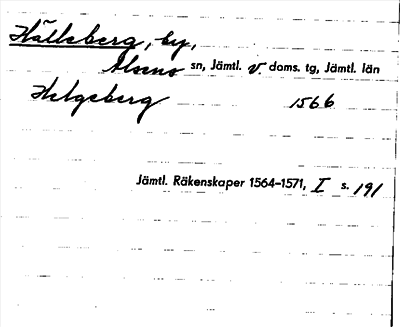 Hällsberg, by,
Alsens sn, Jämtl. v. doms. tg, Jämtl. län
Helgeberg 1566
Jämtl. Räkenskaper 1564–1571, I s. 191